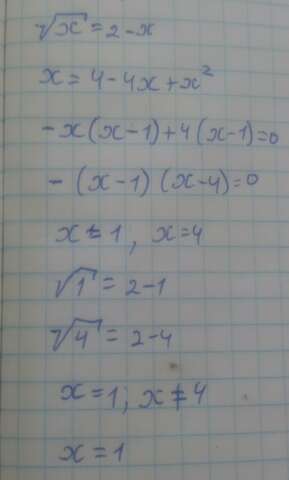 √x = 2 - x
x = 4 - 4x + x²
- x (x - 1) + 4 (x - 1) = 0
- (x - 1) (x - 4) = 0
x = 1, x = 4
√1 = 2 - 1
√4 = 2 - 4
x = 1, x ≠ 4
x = 1